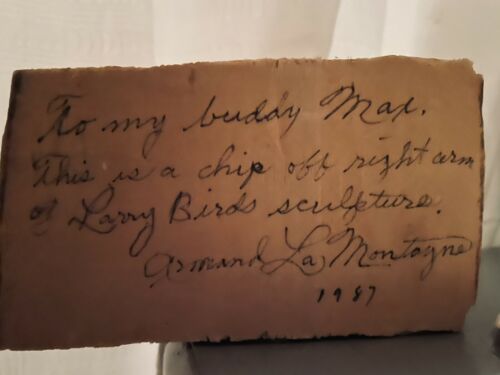 To my buddy Max.
This is a chip off right arm
of Larry Birds sculpture.
Armand La Montagne
1987